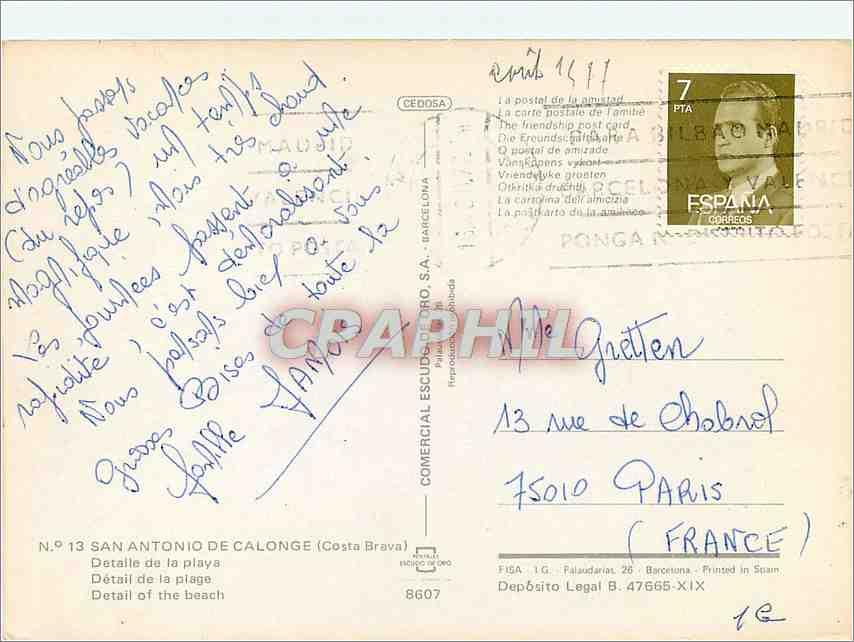 Nous passons
d'agréables vacances
(du repos) un temps
magnifique. Mais très chaud.
Les journées passent à une
rapidité, c'est démoralisant.
Nous pensons bien à vous.
Grosses Bises de toute la
famille
N.º 13 SAN ANTONIO DE CALONGE (Costa Brava)
Detalle de la playa
Détail de la plage
Detail of the beach
8607
POSTALES
ESCUDO DE ORO
CEDOSA
COMERCIAL ESCUDO DE ORO, S.A. - BARCELONA
Palaudarias, 26
Reproducción prohibida
CRAPHIL
1977
La postal de la amistad
La carte postale de l'amitié
The friendship post card
Die Freundschaftskarte
O postal de amizade
Vänskapens vykort
Vriendelyke groeten
Otkritka druzhbi
La cartolina dell'amicizia
La postkarto de la amikeco
7
PTA
ESPAÑA
CORREOS
MADRID
BILBAO MADRID
BARCELONA VALENCI
PONGA
Mlle Gretten
13 rue de Chabrol
75010 PARIS
(FRANCE)
FISA - I.G. - Palaudarias, 26 - Barcelona - Printed in Spain
Depósito Legal B. 47665-XIX
1€